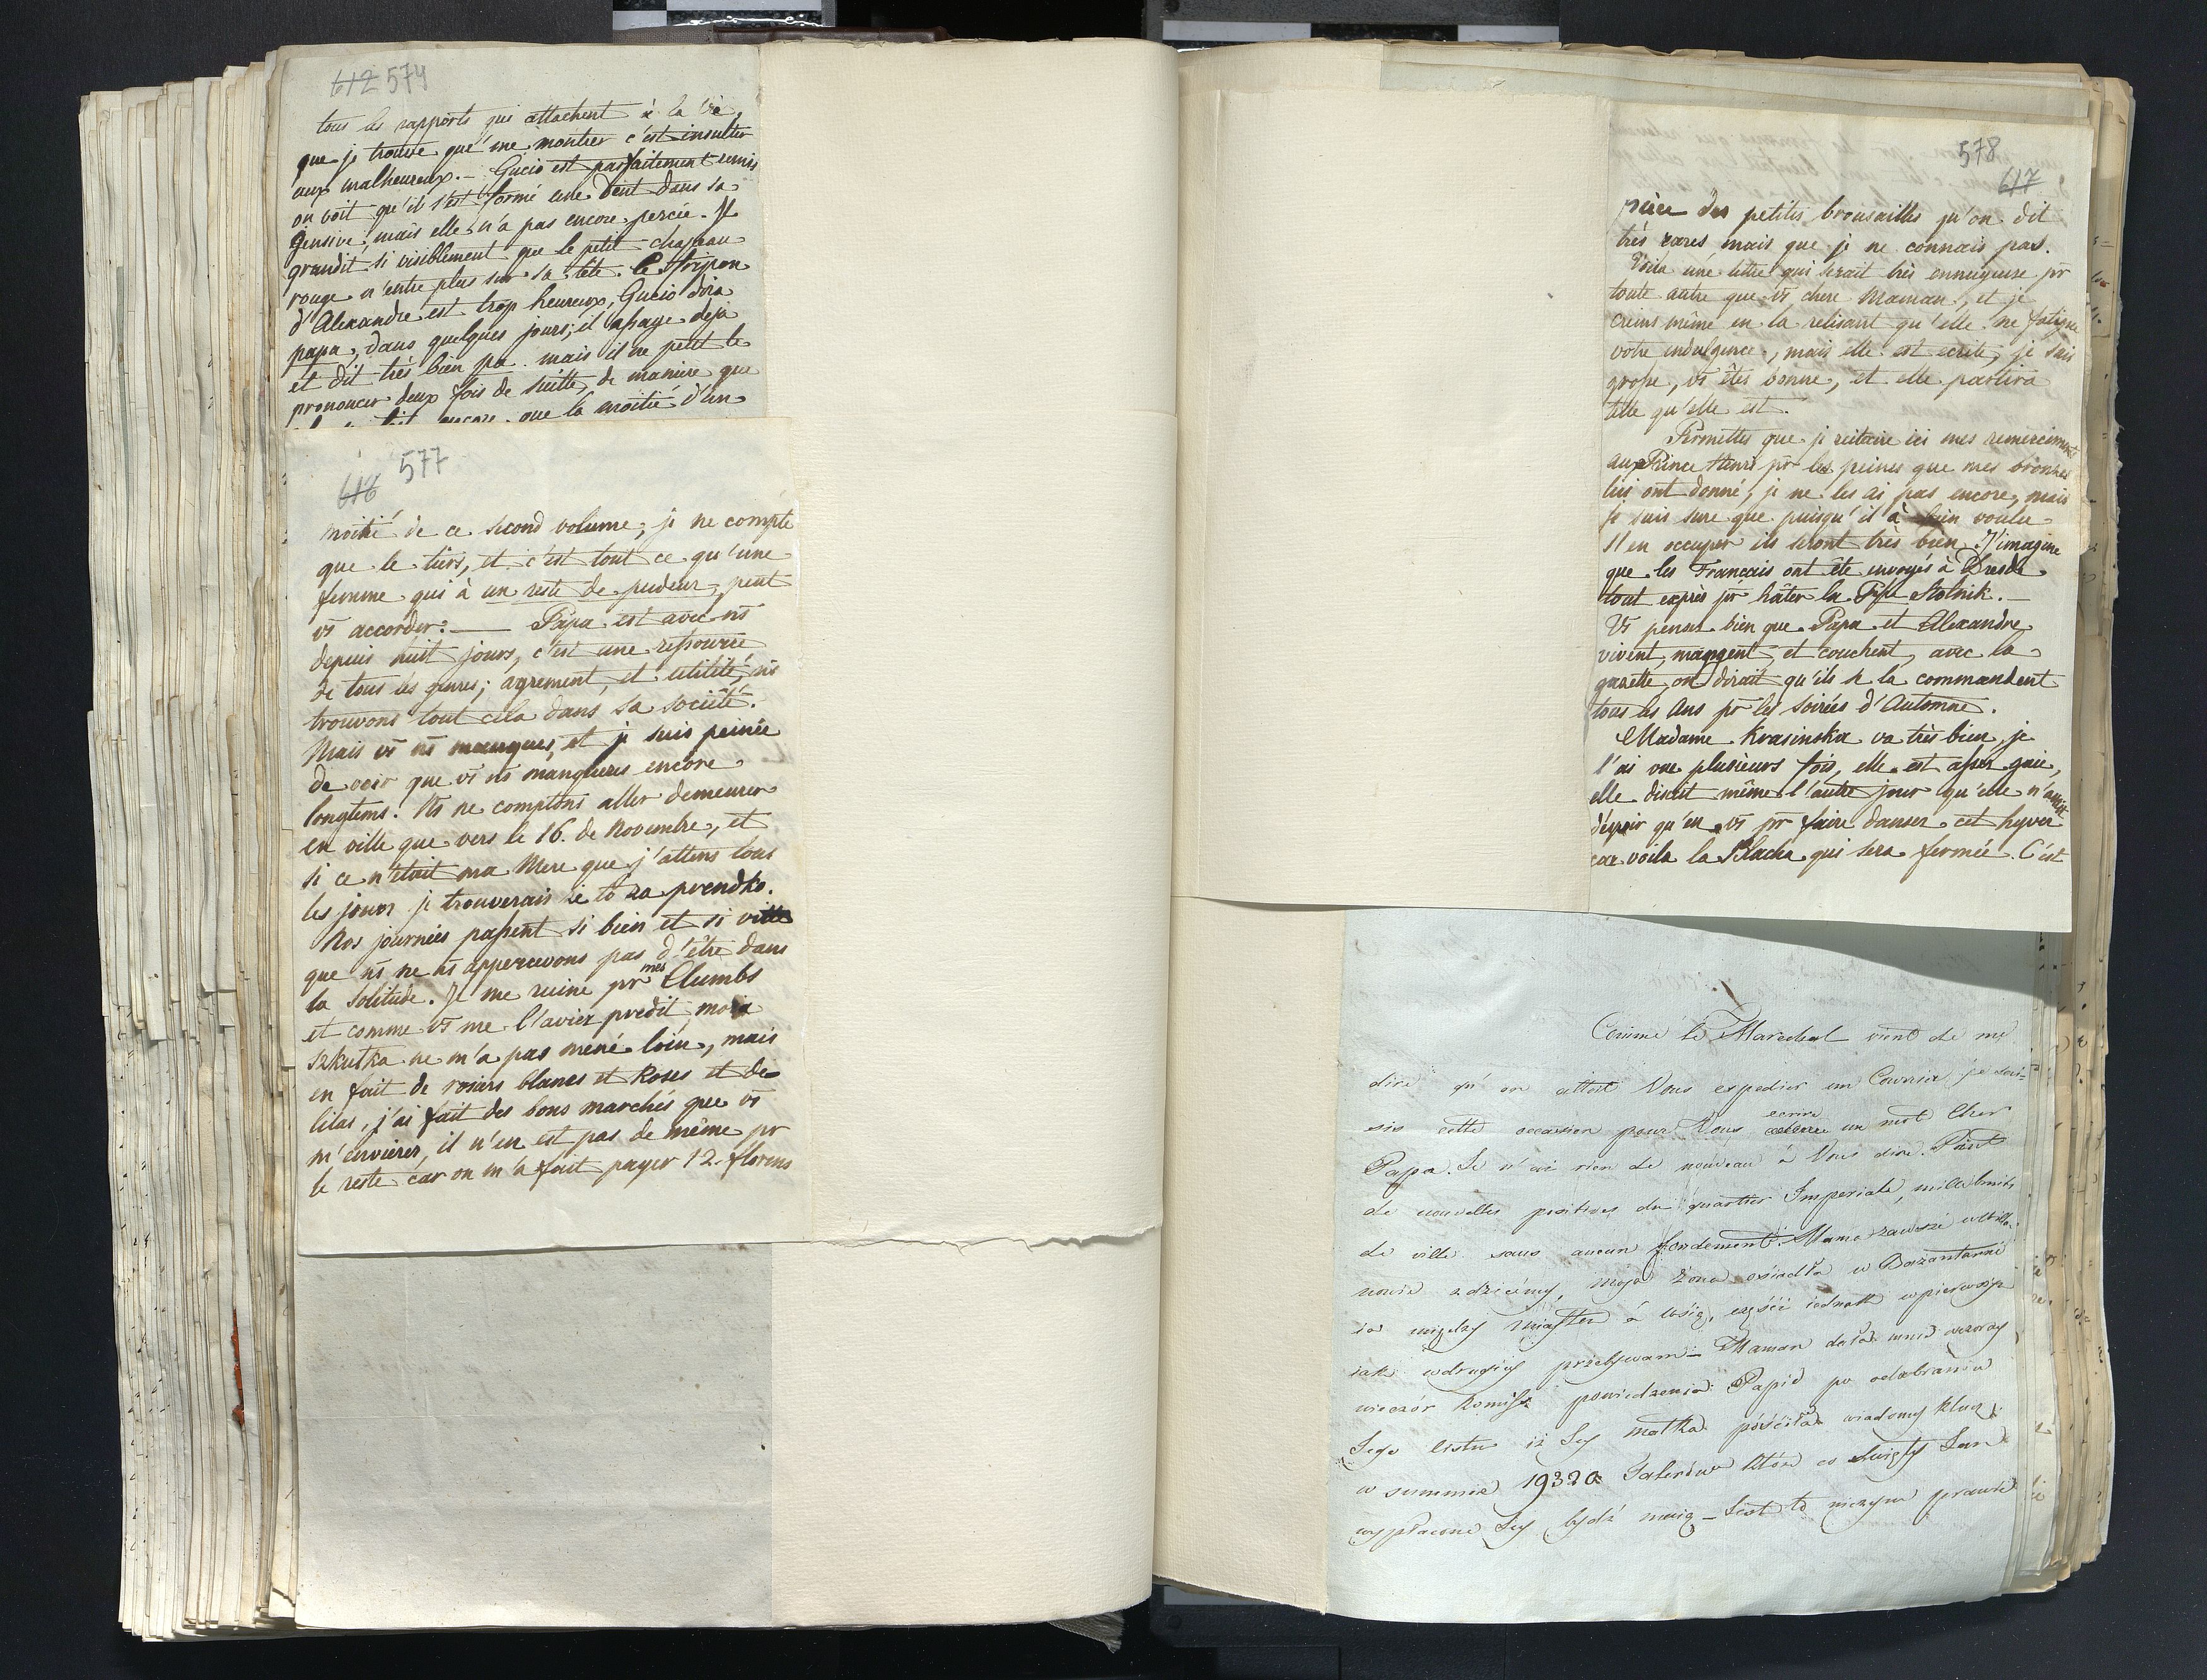 612 574
tous les rapports qui attachent à la vie,
que je trouve que me montrer c'est insulter
aux malheureux. - Gucio est parfaitement remis
on voit qu'il s'est formé une dent dans sa
gensive, mais elle n'a pas encore percée. Il
grandit si visiblement que le petit chapeau
rouge n'entre plus sur sa tête. le fripon
d'Alexandre est trop heureux, Gucio dira
papa, dans quelques jours; il assaye deja
et dit très bien pa. mais il ne peut le
prononcer deux fois de suitte, de maniere que
encore que la moitié d'un
616 577
moitié de ce second volume; je ne compte
que le tiers, et c'est tout ce qu'une
femme qui à un reste de pudeur, peut
vs accorder. — Papa est avec ns
depuis huit jours, c'est une ressource
de tous les genres; agrement, et utilité, ns
trouvons tout cela dans sa société.
Mais vs ns manques, et je suis peinée
de voir que vs ns manqueres encore
longtems. Ns ne comptons aller demeurer
en ville que vers le 16. de Novembre, et
si ce n'était ma Mere que j'attens tous
les jours je trouverais że to za prendko.
Nos journées passent si bien et si vitte
que ns ne ns appercevons pas d'être dans
la solitude. Je me ruine pr mes Clumbs
et comme vs me l'aviez predit, moia
szkutka ne m'a pas mené loin, mais
en fait de rosiers blancs et Roses et de
lilas, j'ai fait des bons marchés que vs
m'envieres, il n'en est pas de même pr
le reste car on m'a fait payer 12. florins
578
617
pièce des petites brousailles qu'on dit
très rares mais que je ne connais pas.
Voila une lettre qui serait très ennuyeuse pr
toute autre que vs chere Maman, et je
creins même en la relisant qu'elle ne fatigue
votre indulgence, mais elle est ecrite, je suis
grosse, vs êtes bonne, et elle partira
telle qu'elle est.
Permettes que je reitaire ici mes remerciments
au Prince Henri pr les peines que mes bronzes
lui ont donné, je ne les ai pas encore, mais
je suis sure que puisqu'il à bien voulu
s'en occuper ils seront très bien. J'imagine
que les Francais ont été envoyés à Dresde
tout exprès pr hâter la Psse Stolnik. —
Vs penses bien que Papa et Alexandre
vivent, mangent, et couchent, avec la
gazette, on dirait qu'ils se la commandent
tous les Ans pr les soirées d'Automne.
Madame Krasinska va très bien, je
l'ai vue plusieurs fois, elle est asses gaie,
elle disait même l'autre jour qu'elle n'avait
d'espoir qu'en vs pr faire danser cet hyver
car voila la Blacha qui sera fermée. C'est
Comme le Marechal vient de me
dire qu'on allait Vous expedier un Courrier je sai-
sis cette occasion pour Vous ecrire un mot Cher
Papa. Je n'ai rien de nouveau à Vous dire. Point
de nouvelles positives du quartier Imperiale, mille bruits
de ville sans aucun fondement. Mama zawsze w Willa-
nowie z dziećmy, moja żona osiadła w Bażantarni
ia między miastem á wsią, część iednak w pierwszey
iak w drugiey przebywam — Maman dała mnie wczoray
wieczór Komiss powiedzenia Papie po odebraniu
Jego listu iż Jey matka puściła wiadomy klucz
w summie 19320 Talerów które co Święty Jan
wypłacone Jey bydź maią — Jest to niczym prawie